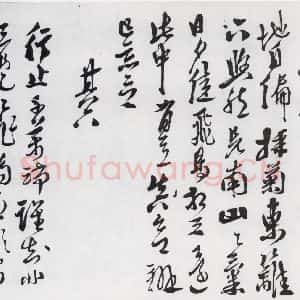 地自偏採菊東籬
下悠然見南山々氣
日夕佳飛鳥相與還
此中有真意欲辨
已忘言
其六
行止千萬端誰知非
Shufawang.CN